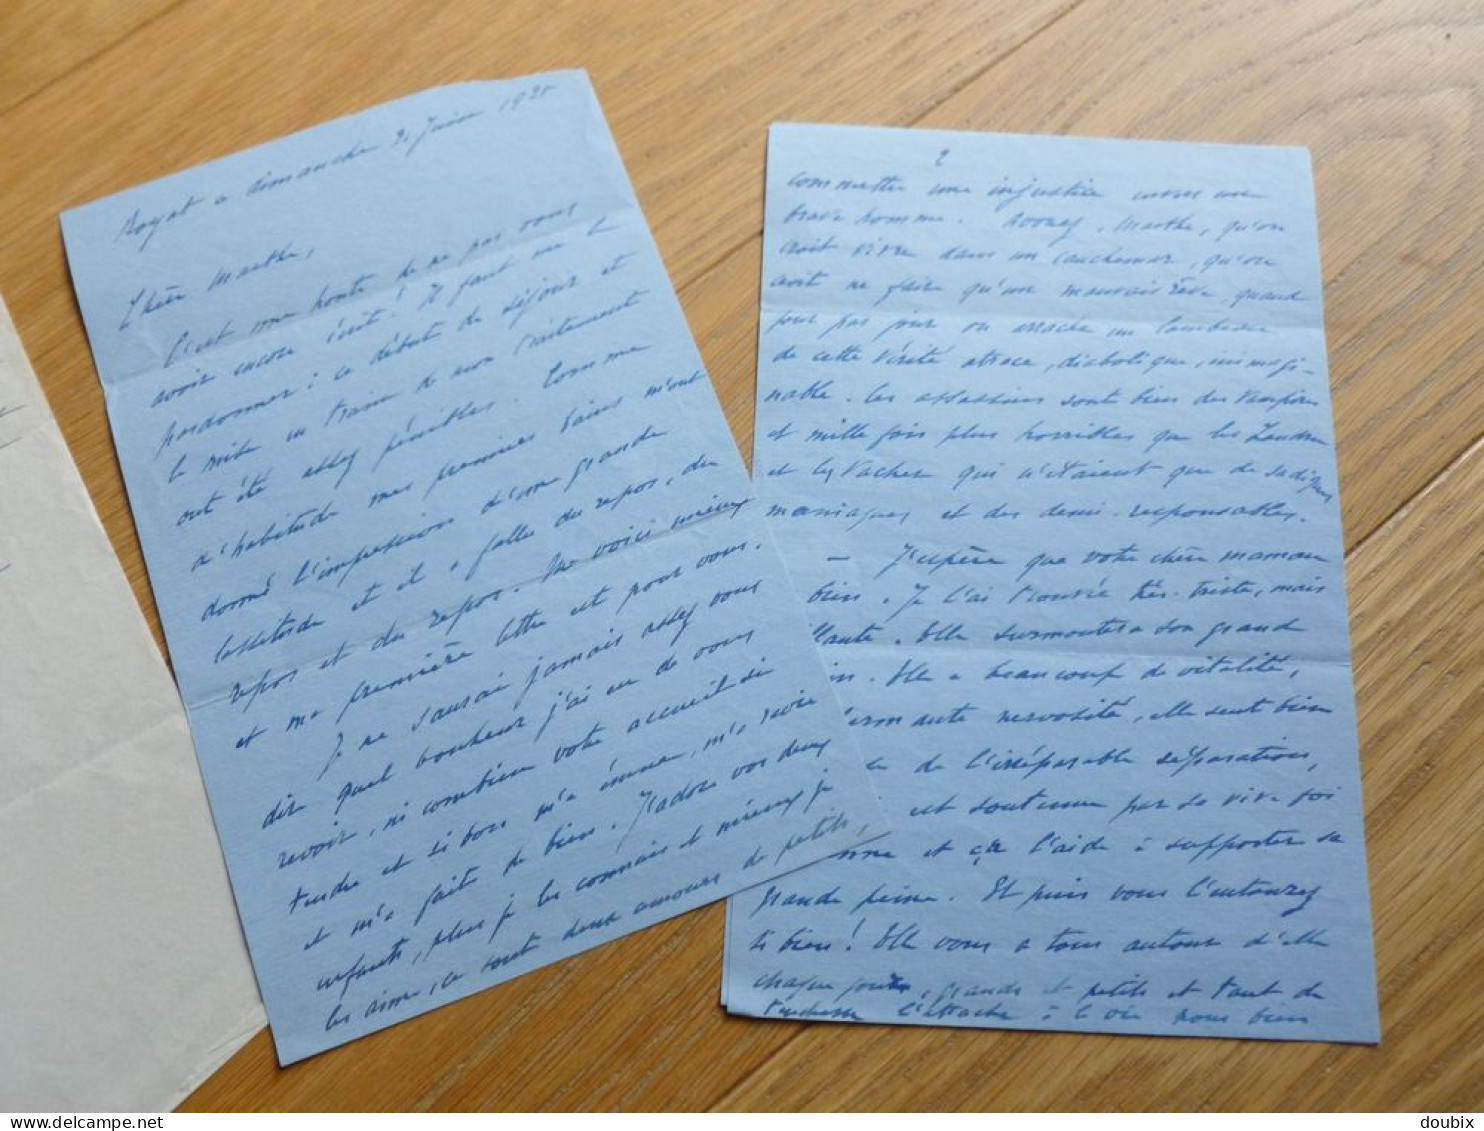 Royat
dimanche
Juin
Chère Marthe,
C'est une honte de ne pas vous
avoir encore écrit! Il faut me le
pardonner: ce début de séjour et
la mise en train de mon traitement
ont été assez pénibles. Comme
d'habitude mes premiers bains m'ont
donné l'impression d'une grande
lassitude et il a fallu du repos, du
repos et du repos. Me voici mieux
et ma première lettre est pour vous.
Je ne saurai jamais assez vous
dire quel bonheur j'ai eu de vous
revoir, ni combien votre accueil si
tendre et si bon m'a émue, m'a ravie
et m'a fait de bien. J'adore vos deux
enfants, plus je les connais et mieux je
les aime, ce sont deux amours de petits,
2
commettre une injustice envers un
brave homme. Avouez, Marthe, qu'on
croit vivre dans un cauchemar, qu'on
croit ne faire qu'un mauvais rêve, quand
jour par jour on arrache un lambeau
de cette vérité atroce, diabolique, inimagi-
nable. Les assassins sont bien des vampires
et mille fois plus horribles que les Landru
et les Vacher qui n'étaient que de sadiques
maniaques et des demi-responsables.
– J'espère que votre chère maman
bien. Je l'ai trouvée très triste, mais
Elle surmontera son grand
Elle a beaucoup de vitalité,
nervosité, elle sent bien
de l'irréparable séparation,
est soutenue par sa vive foi
et ça l'aide à supporter sa
grande peine. Et puis vous l'entourez
si bien! Elle vous a tous autour d'elle
chaque jour, grands et petits et tant de
tendresse l'attache à la vie
bien
delcampe.net
doubix